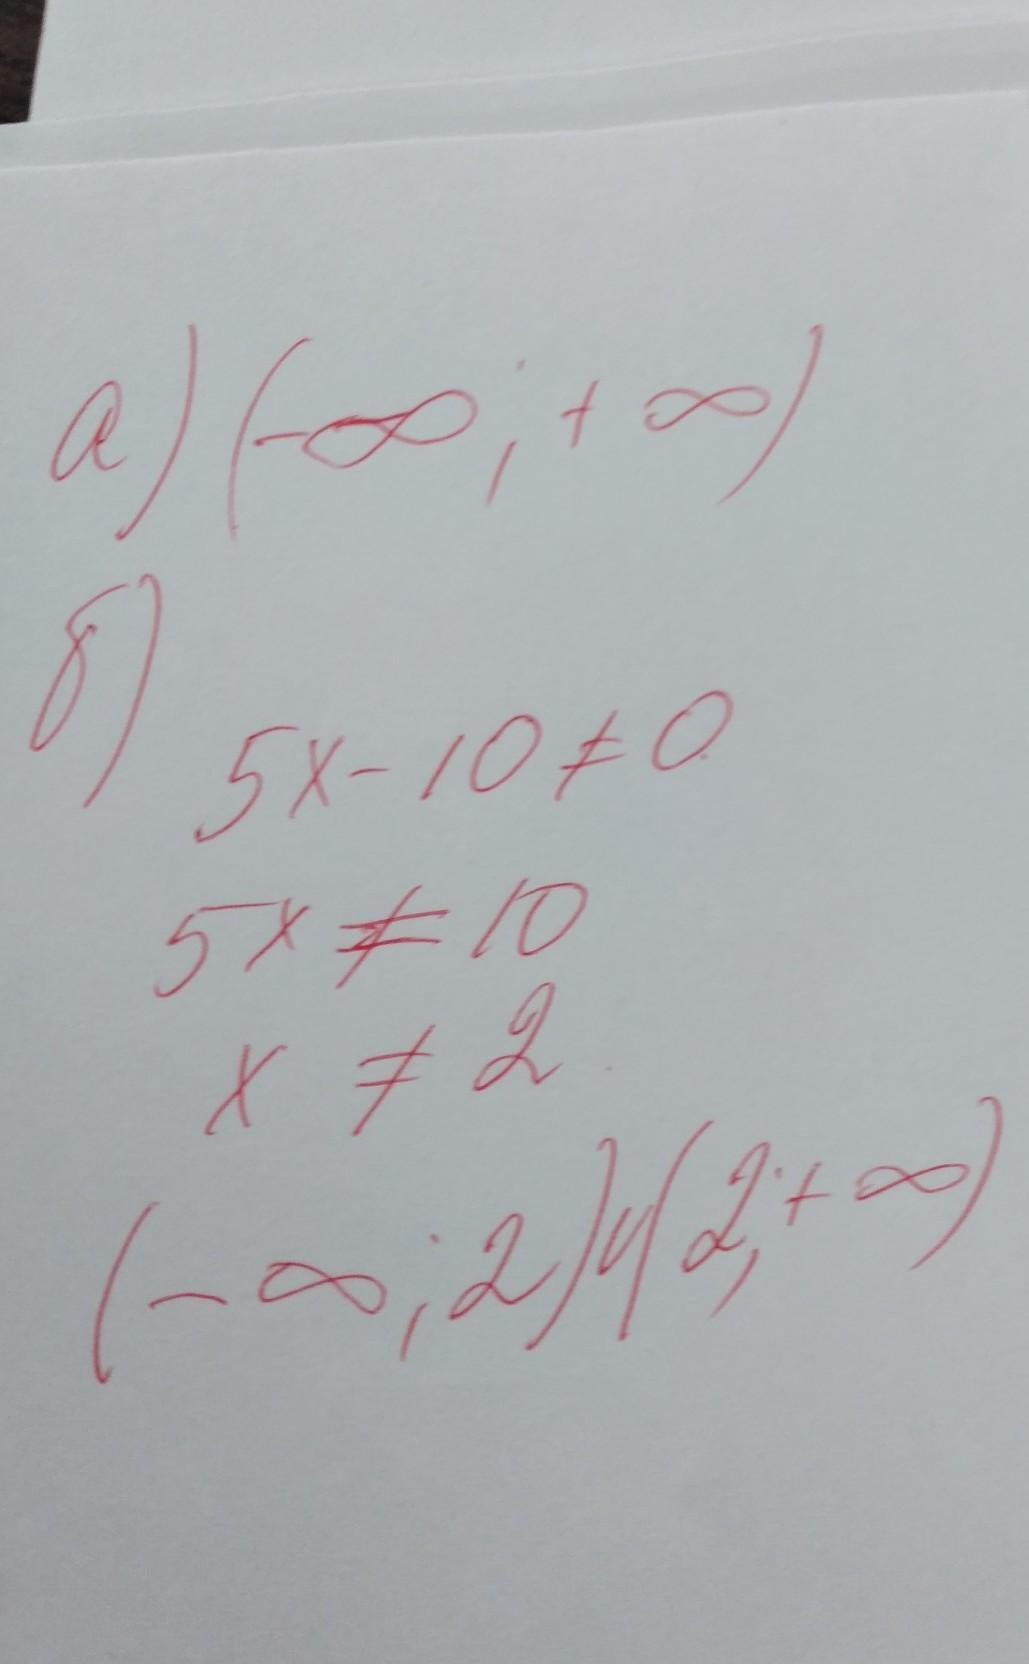 а) (-∞; +∞)
б)
5x - 10 ≠ 0
5x ≠ 10
x ≠ 2
(-∞; 2) u (2; +∞)